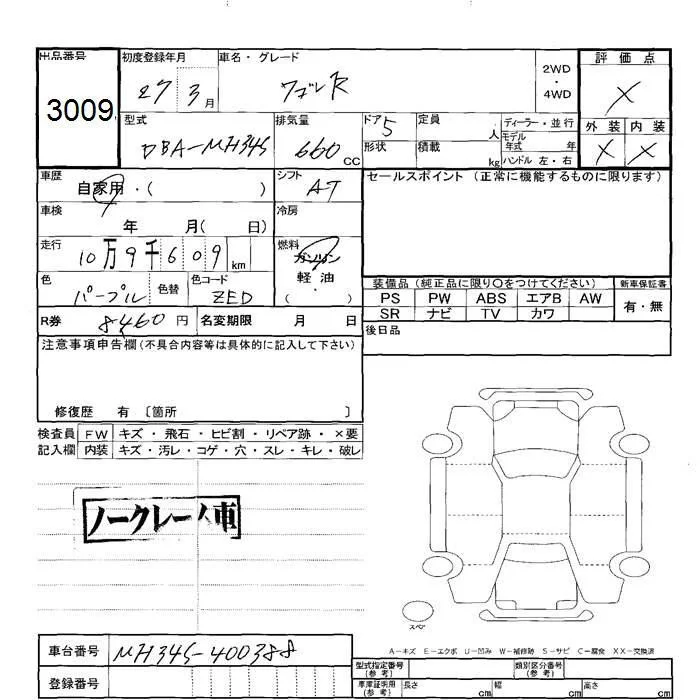 出品番号 初度登録年月 車名・グレード 2WD・4WD 評価点
3009 27 3月 ワゴンR X
型式 排気量 ドア 5 定員 人 ディーラー・並行 外装 内装
DBA-MH34S 660 CC 形状 積載 kg モデル年式 年 X X
ハンドル 左・右
車歴 自家用・( ) シフト AT セールスポイント (正常に機能するものに限ります)
車検 年 月( 日) 冷房
走行 10万9千609 km 燃料 ガソリン
軽油
( )
色 パープル 色替 色コード ZED 装備品 (純正品に限り○をつけてください) 新車保証書
PS PW ABS エアB AW 有・無
R券 8460円 名変期限 月 日 SR ナビ TV カワ
後日品
注意事項申告欄(不具合内容等は具体的に記入して下さい)
修復歴 有 〔箇所 〕
検査員 FW キズ・飛石・ヒビ割・リペア跡・×要
記入欄 内装 キズ・汚レ・コゲ・穴・スレ・キレ・破レ
ノークレーム車
スペア
A-キズ E-エクボ U-凹み W-補修跡 S-サビ C-腐食 XX-交換済
車台番号 MH34S-400388
登録番号
型式指定番号(参考) 類別区分番号(参考)
車庫証明用(参考) 長さ cm 幅 cm 高さ cm